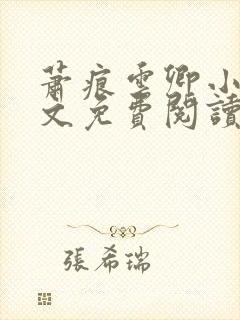 蕭痕雲卿小
文免費閱讀
張希瑞